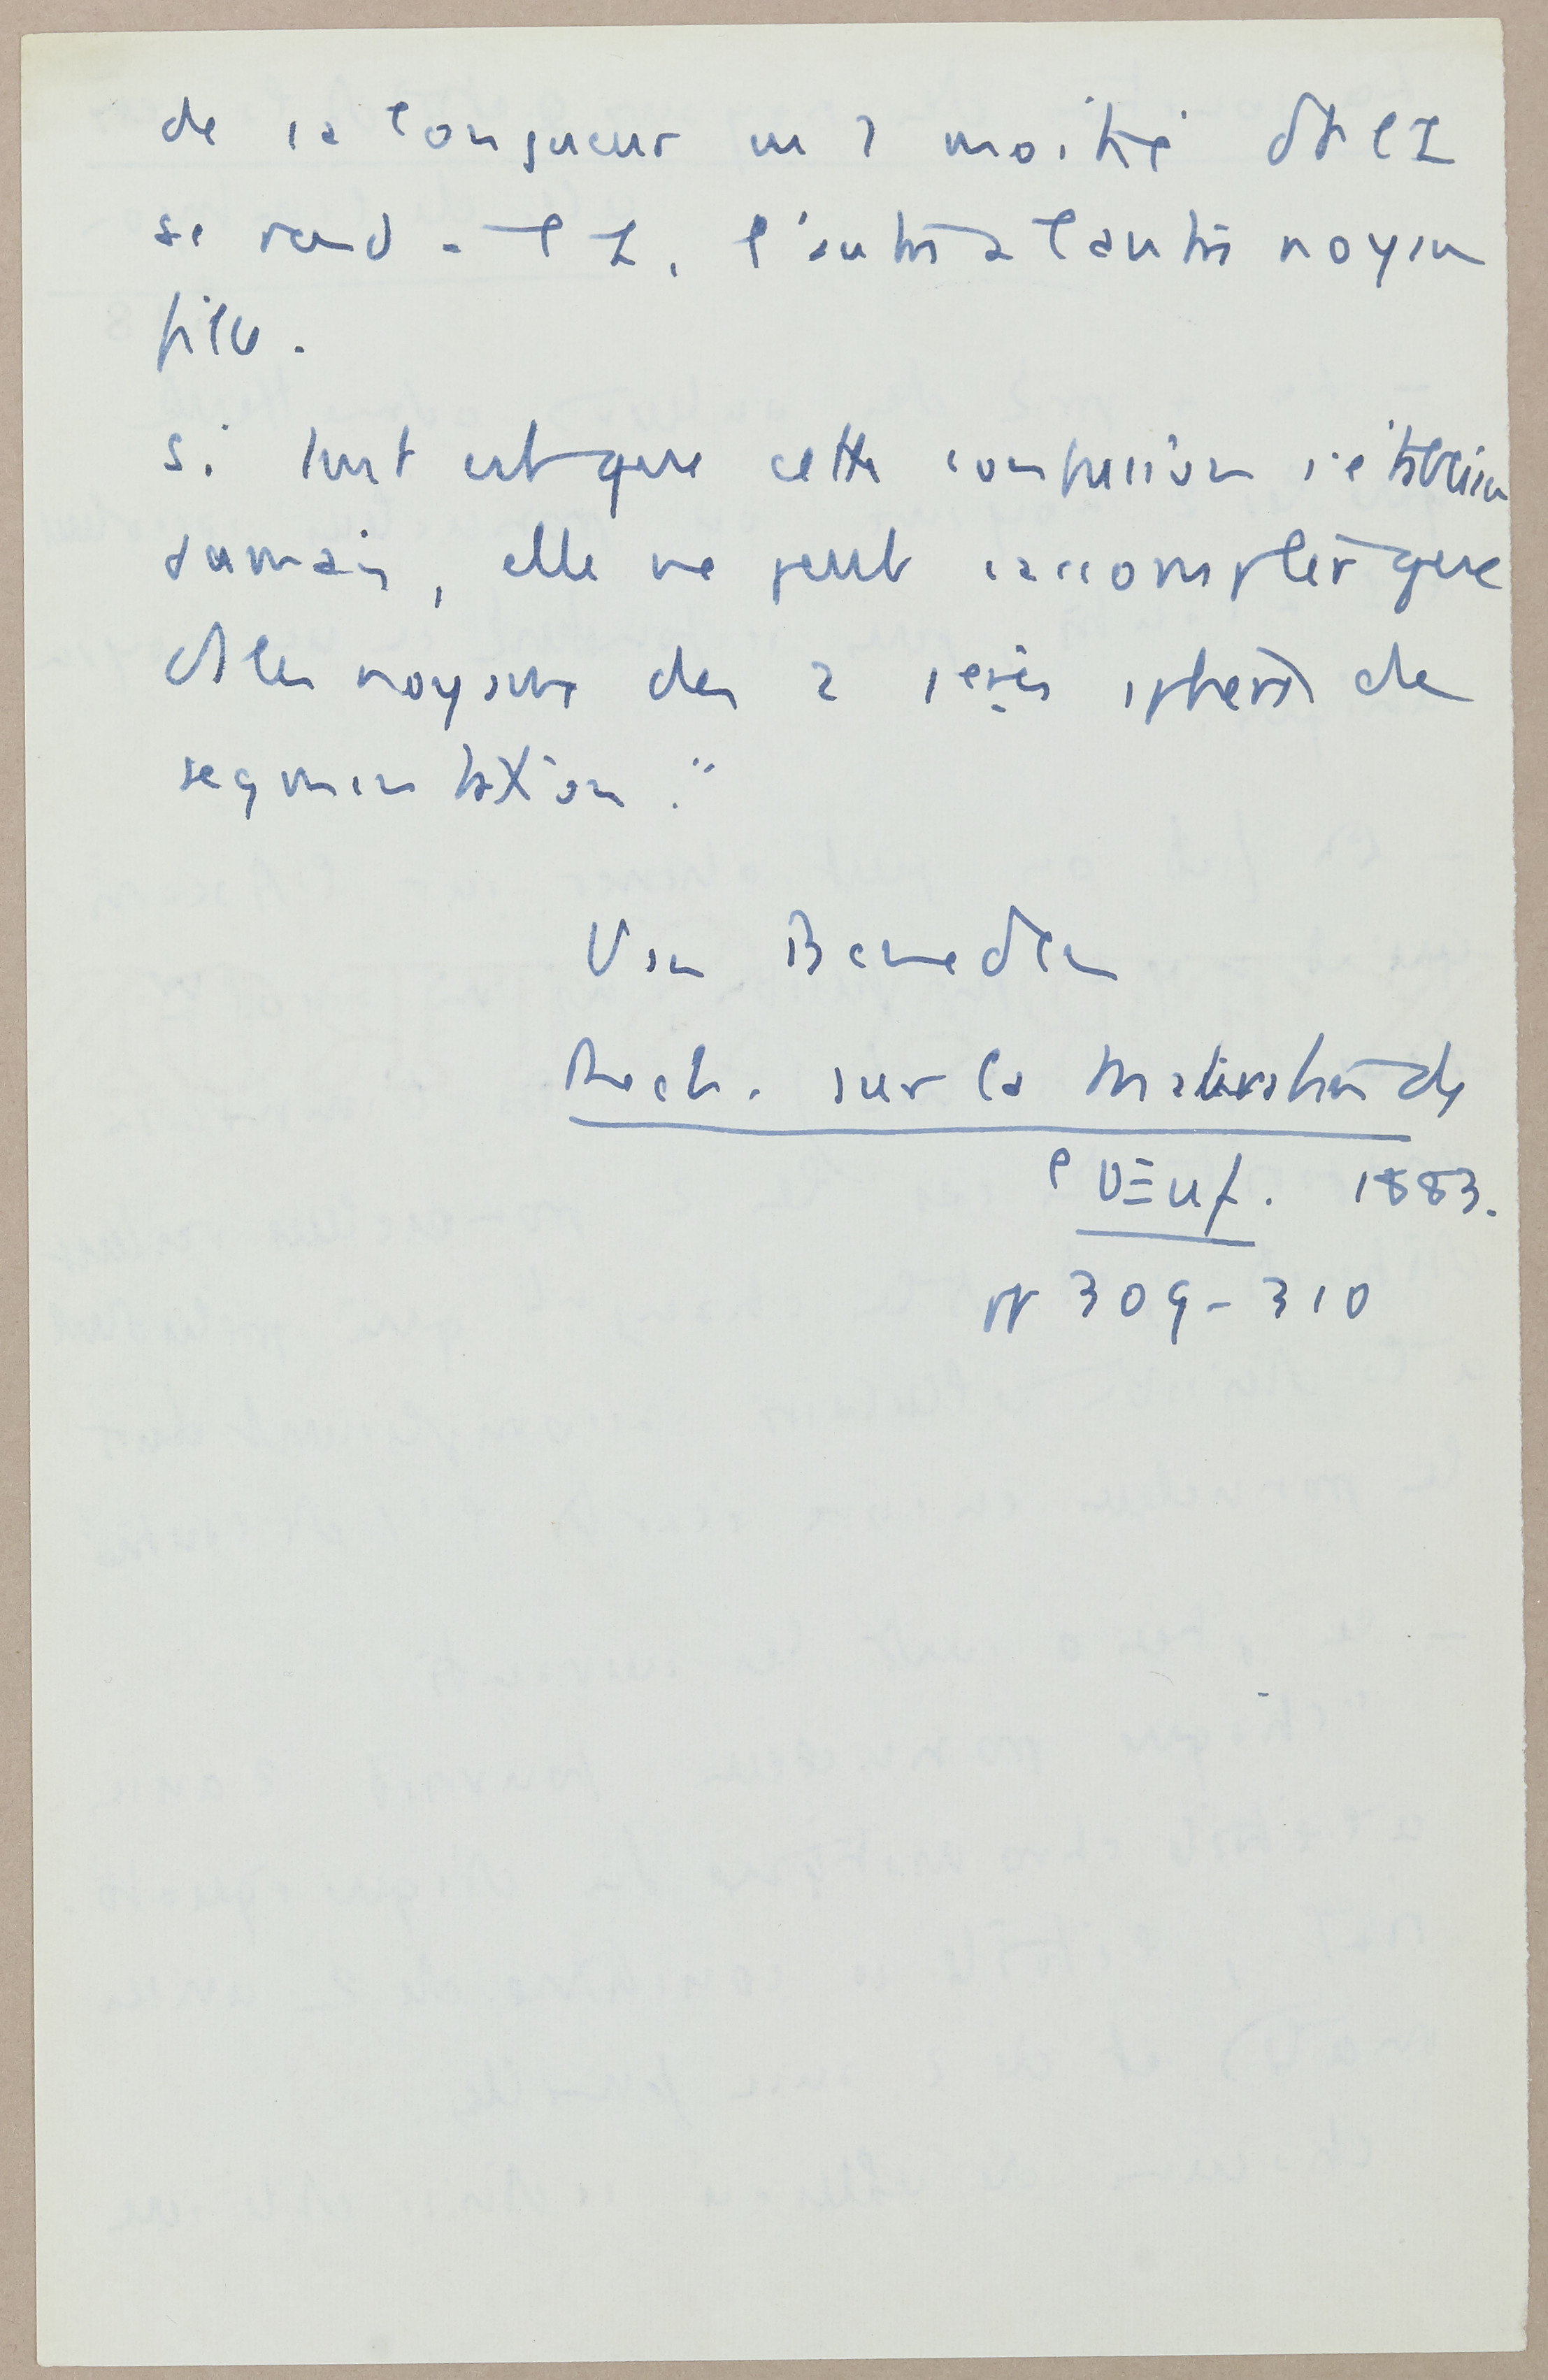 de sa longueur en 2 moitiés dt l'1
se rend à l'1, l'autre à l'autre noyau
filu.
Si tant est que cette confusion s'établisse
jamais, elle ne peut s'accomplir que
ds les noyaux des 2 1ères sphères de
segmentation."
Van Beneden
Rech. sur la Maturation de
l'Œuf. 1883.
pp 309-310